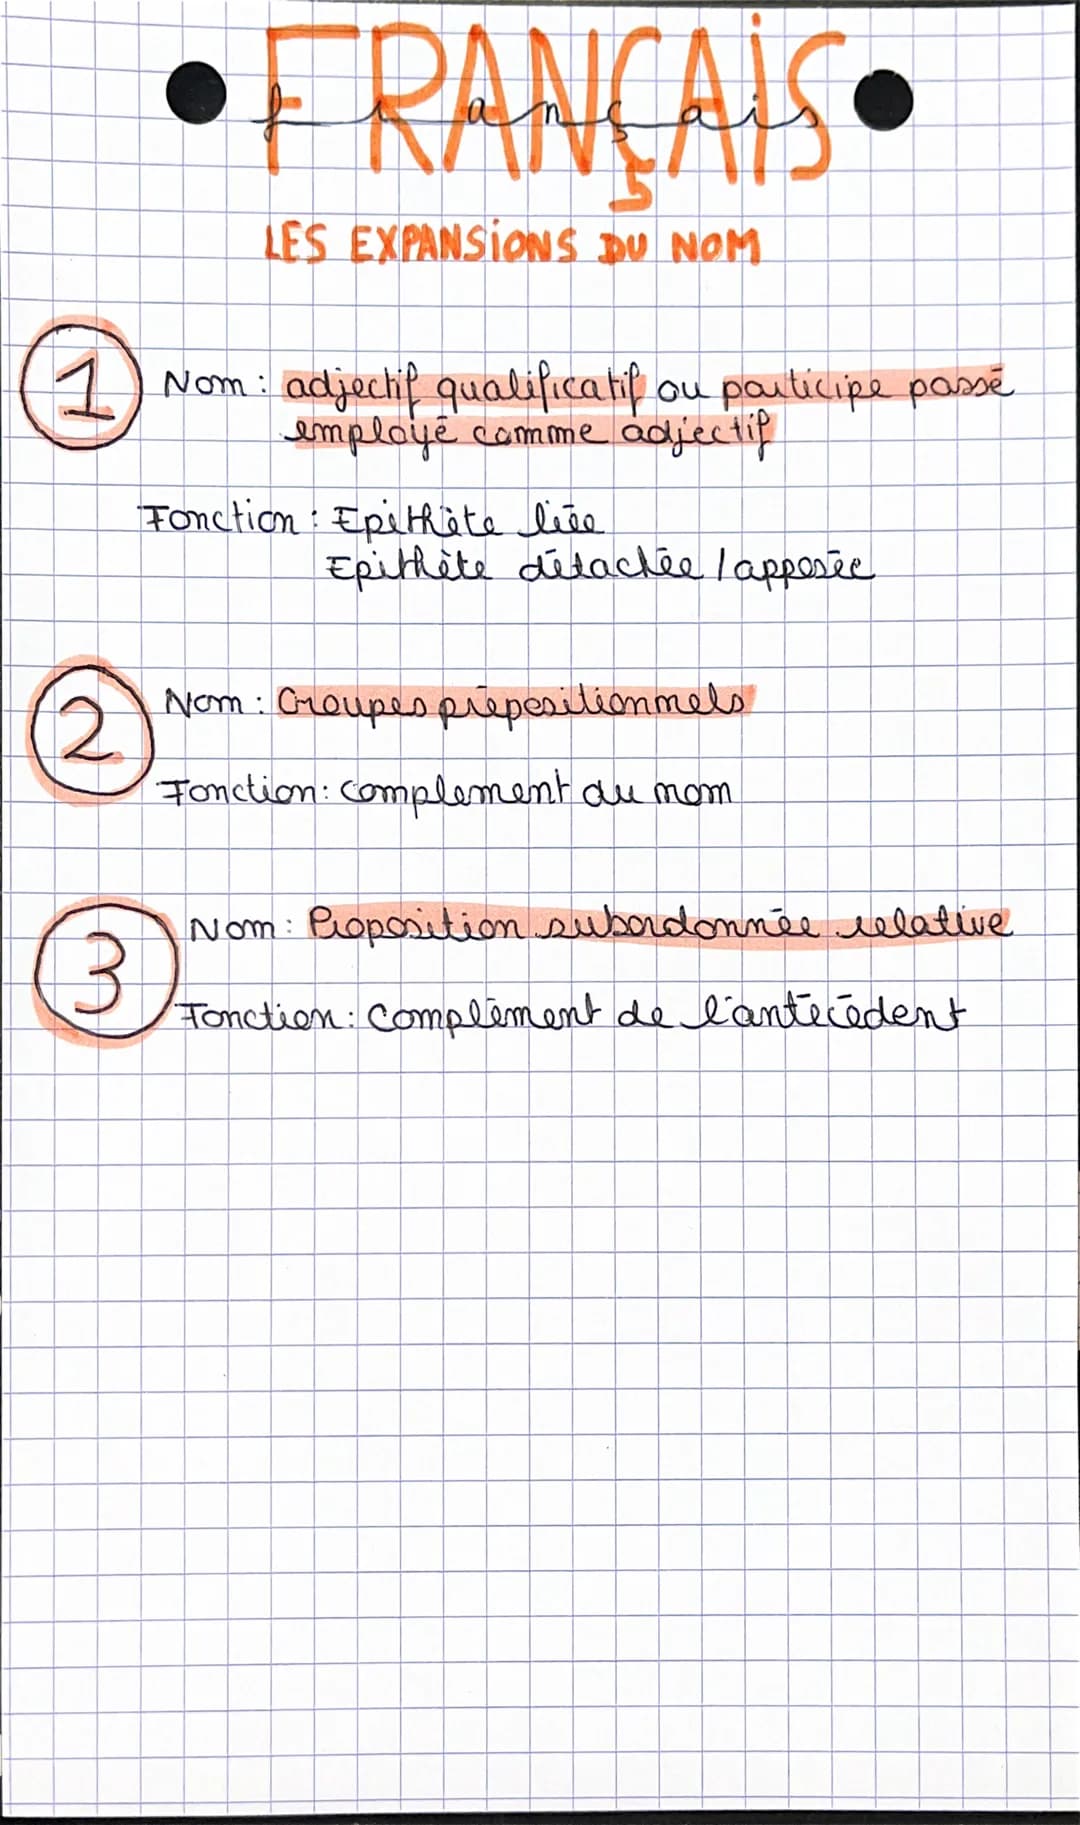 FRANÇAIS
français
LES EXPANSIONS DU NOM
1 Nom : adjectif qualificatif ou participe passé
employé comme adjectif
Fonction : Epithète liée
Epithète détachée / apposée
2 Nom : Groupes prépositionnels
Fonction : complement du nom
3 Nom : Proposition subordonnée relative
Fonction : Complément de l'antécédent